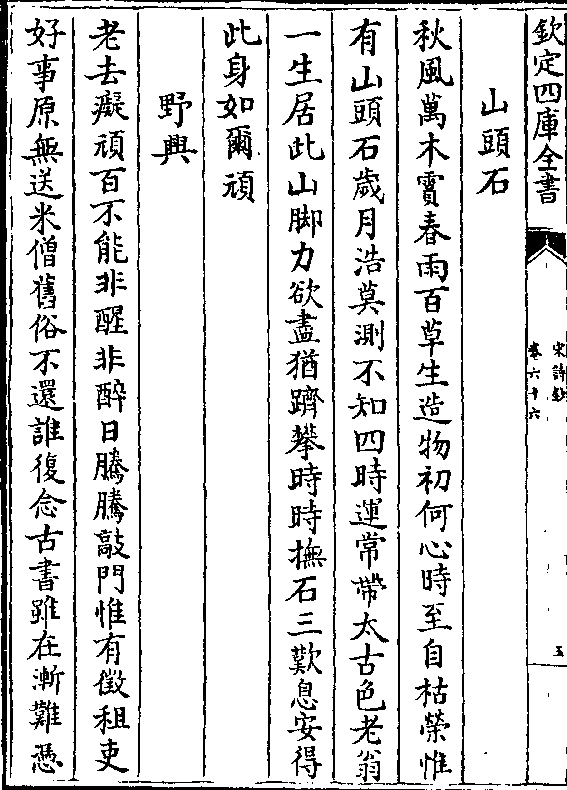 欽定四庫全書
宋詩鈔
卷六十六
五
山頭石
秋風萬木賣春雨百草生造物初何心時至自枯榮惟
有山頭石歲月浩莫測不知四時運常帶太古色老翁
一生居此山脚力欲盡猶躋攀時時撫石三歎息安得
此身如爾頑
野興
老去癡頑百不能非醒非醉日騰騰敲門惟有徵租吏
好事原無送米僧舊俗不還誰復念古書雖在漸難憑